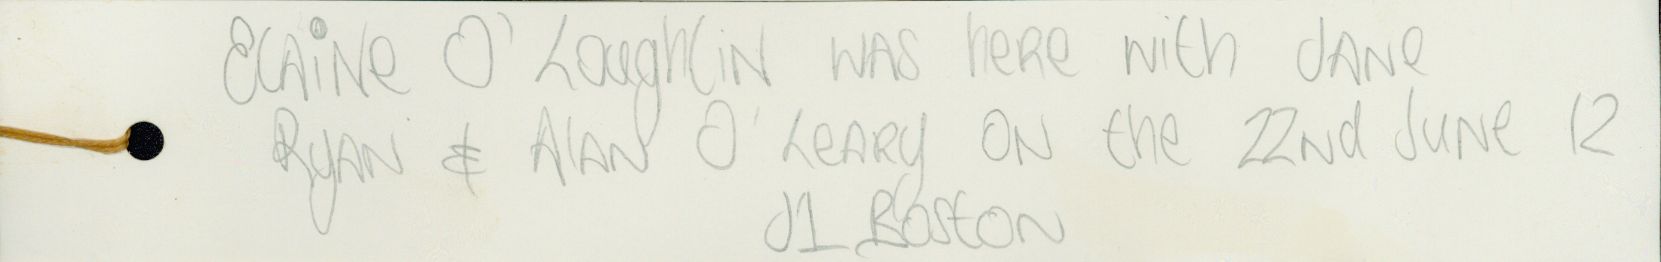 Elaine O' Loughlin was here with Jane
Ryan & Alan O' Leary on the 22nd June 12
J1 Boston